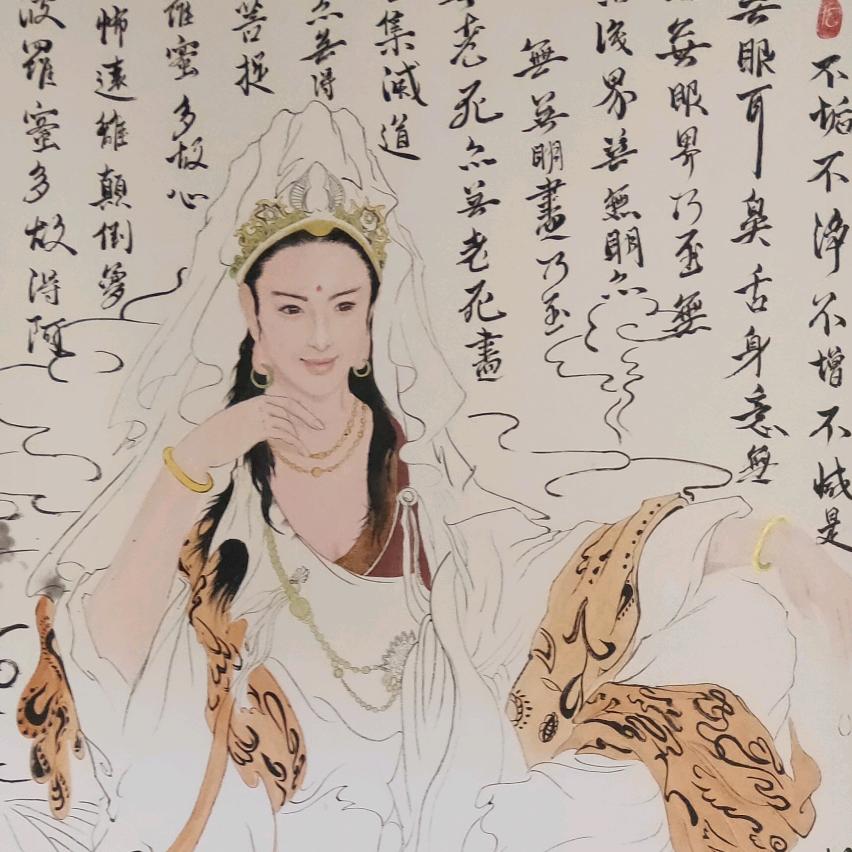 不垢不淨不增不減是
無眼耳鼻舌身意無
無眼界乃至無
界無無明亦
無無明盡乃至
老死亦無老死盡
集滅道
亦無得
菩提
羅蜜多故心
怖遠離顛倒夢
波羅蜜多故得阿